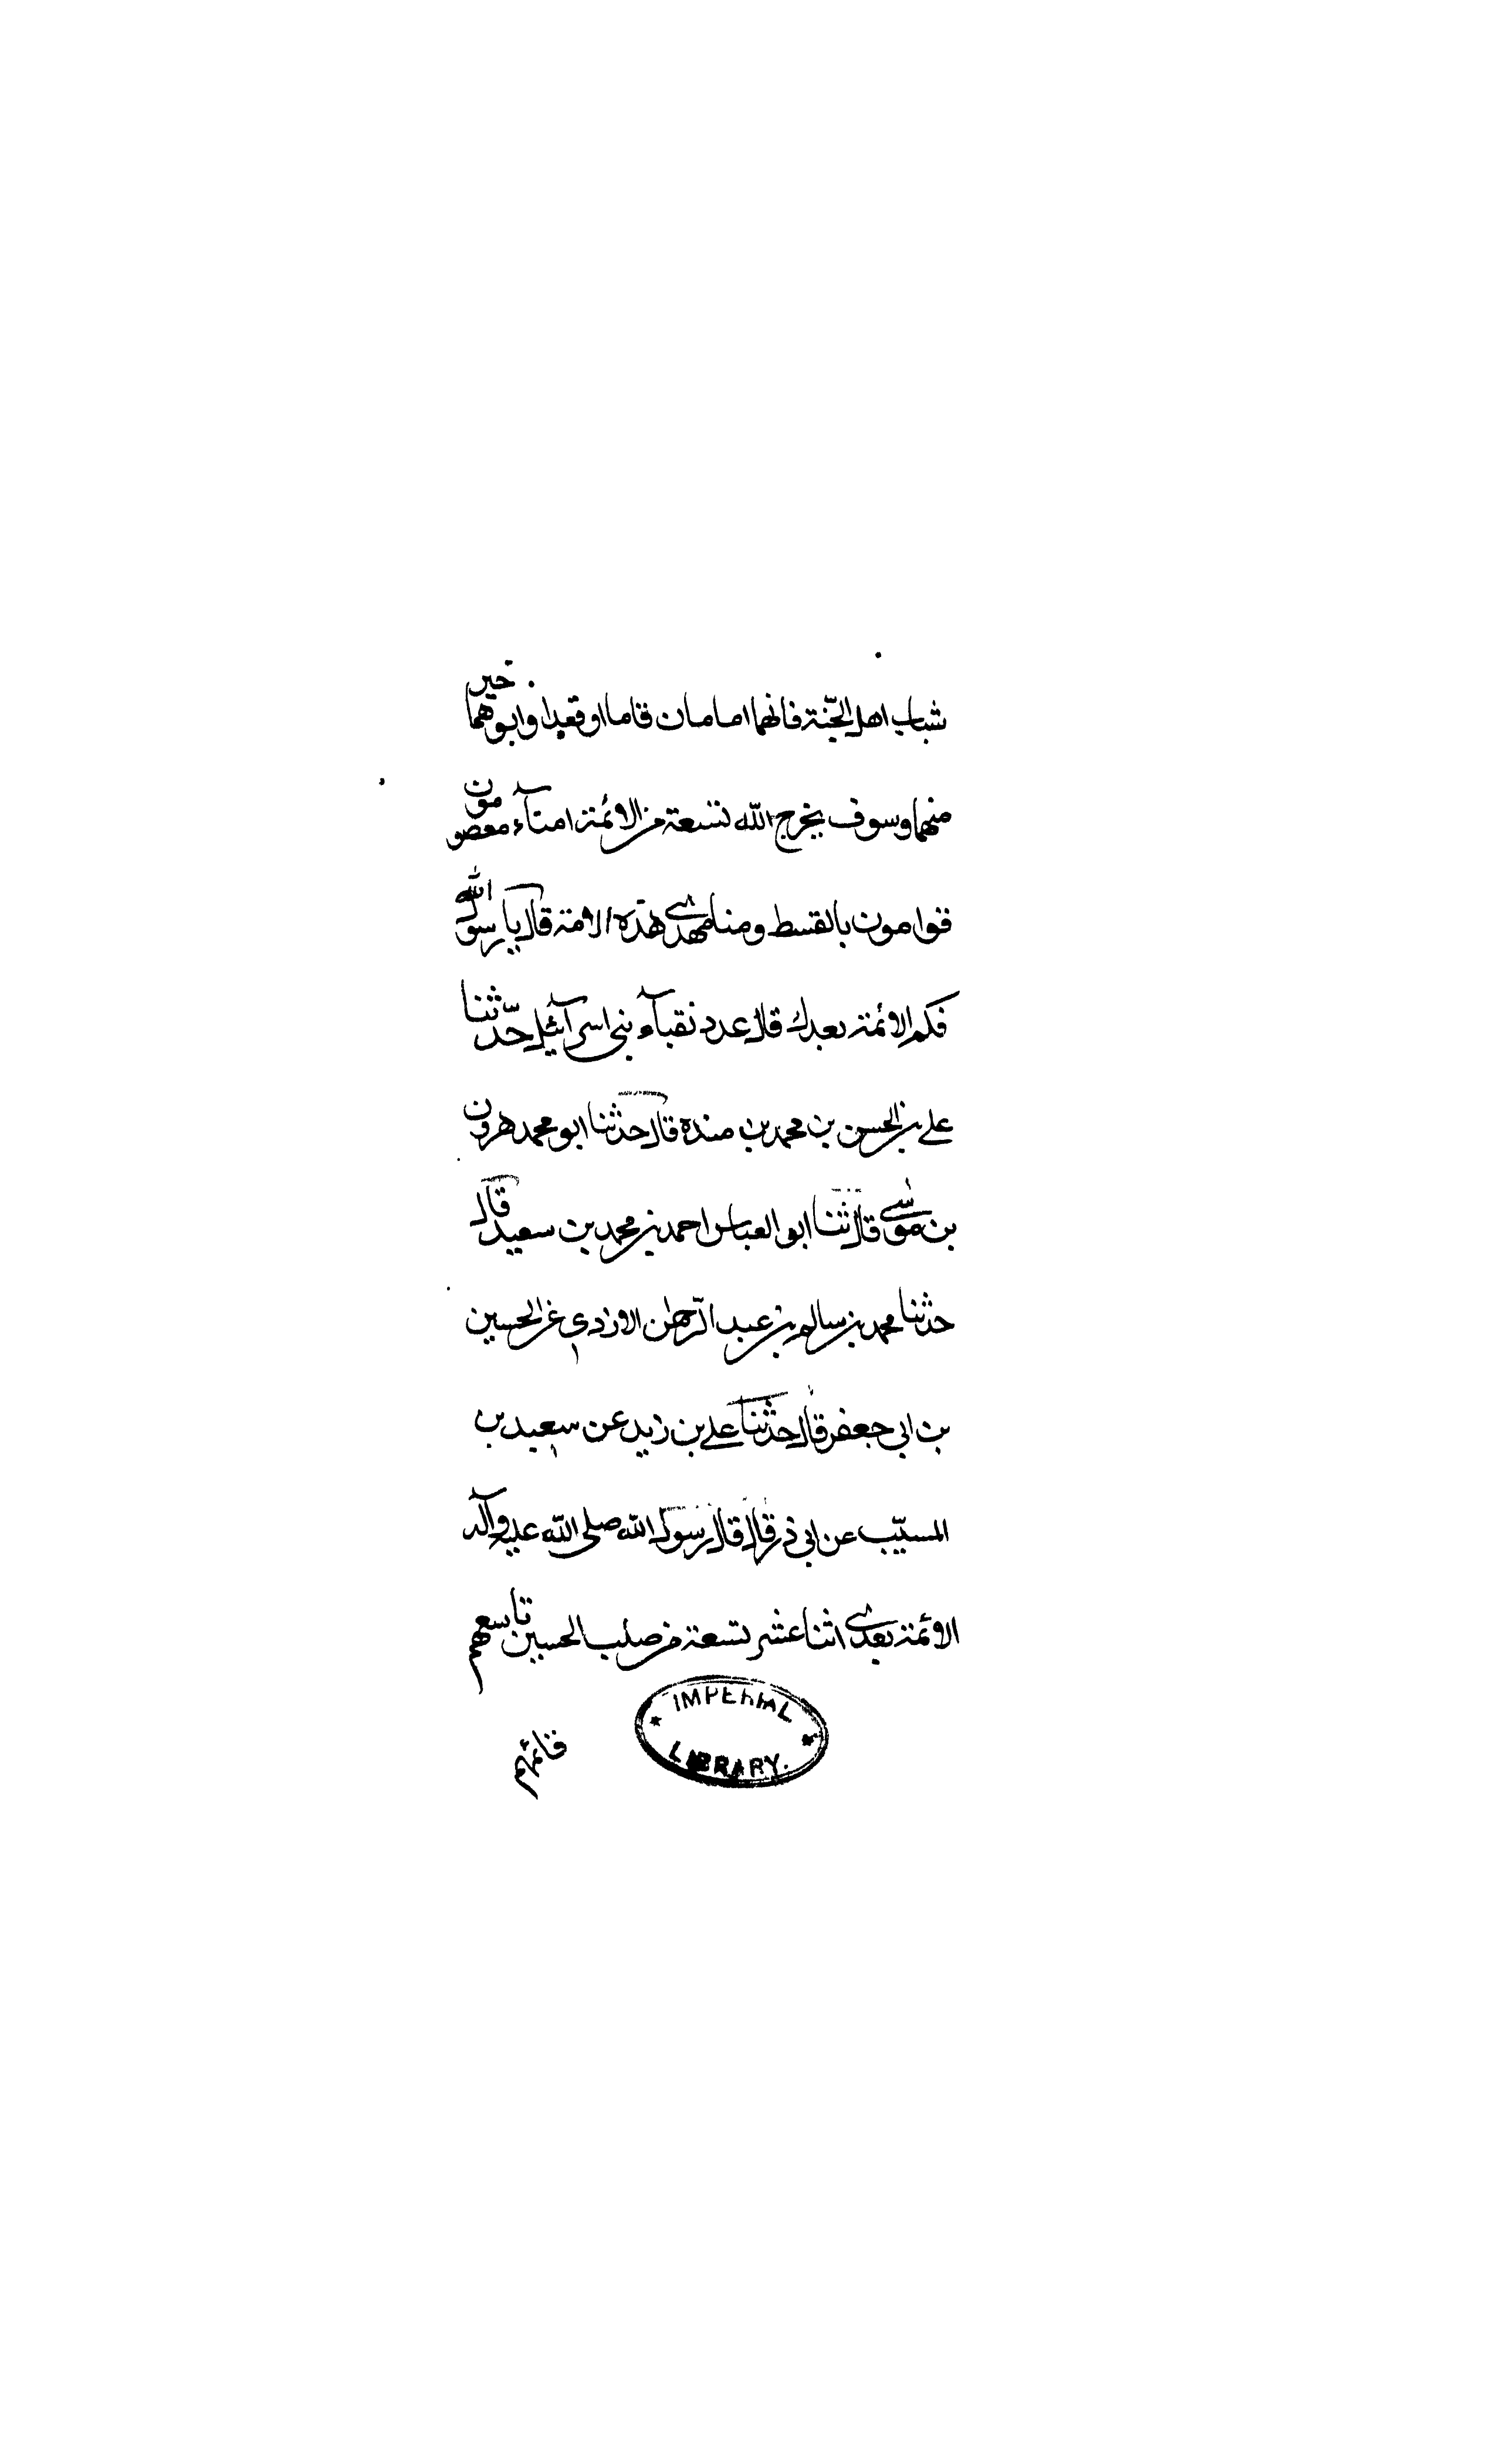 شباب اهل الجنّة فانهما امامان قاما او قعدا وابوهما خير
منهما وسوف يخرج الله تسعة من الائمة امنآء معصومون
قوامون بالقسط ومنا مهدي هذه الامة قال يا رسول الله
فكم الائمة بعدك قال عدد نقبآء بني اسرآئيل حدّثنا
علي بن الحسن بن محمد بن منده قال حدثنا ابو محمد هرون
بن موسى قال ثنا ابو العباس احمد بن محمد بن سعيد قال
حدثنا محمد بن سالم بن عبد الرّحمن الازدي عن الحسين
بن ابي جعفر قال حدثنا علي بن زيد عن سعيد بن
المسيّب عن ابي ذر قال قال رسول الله صلى الله عليه وآله
الائمة بعدي اثنا عشر تسعة من صلب الحسين تاسعهم
قائمهم
IMPERIAL
LIBRARY.